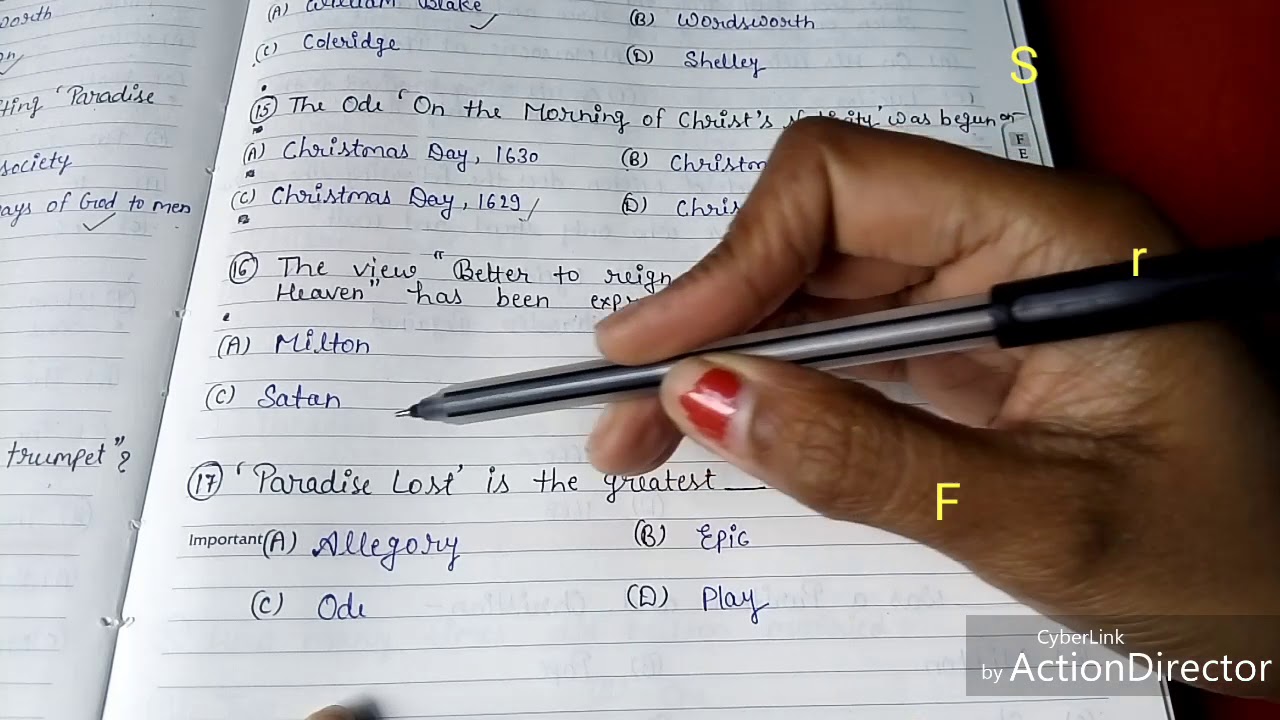 orth
ting 'Paradise
society
ays of God to men
trumpet"?
(A) William Blake
(B) Wordsworth
(C) Coleridge
(D) Shelley
(15) The Ode 'On the Morning of Christ's was begun on
(A) Christmas Day, 1630
(B)
(C) Christmas Day, 1629
(D)
(16) The view "Better to reign
Heaven" has been
(A) Milton
(C) Satan
(17) 'Paradise Lost' is the greatest __
Important (A) Allegory
(B) Epic
(C) Ode
(D) Play
S
F
E
r
F
CyberLink
by ActionDirector